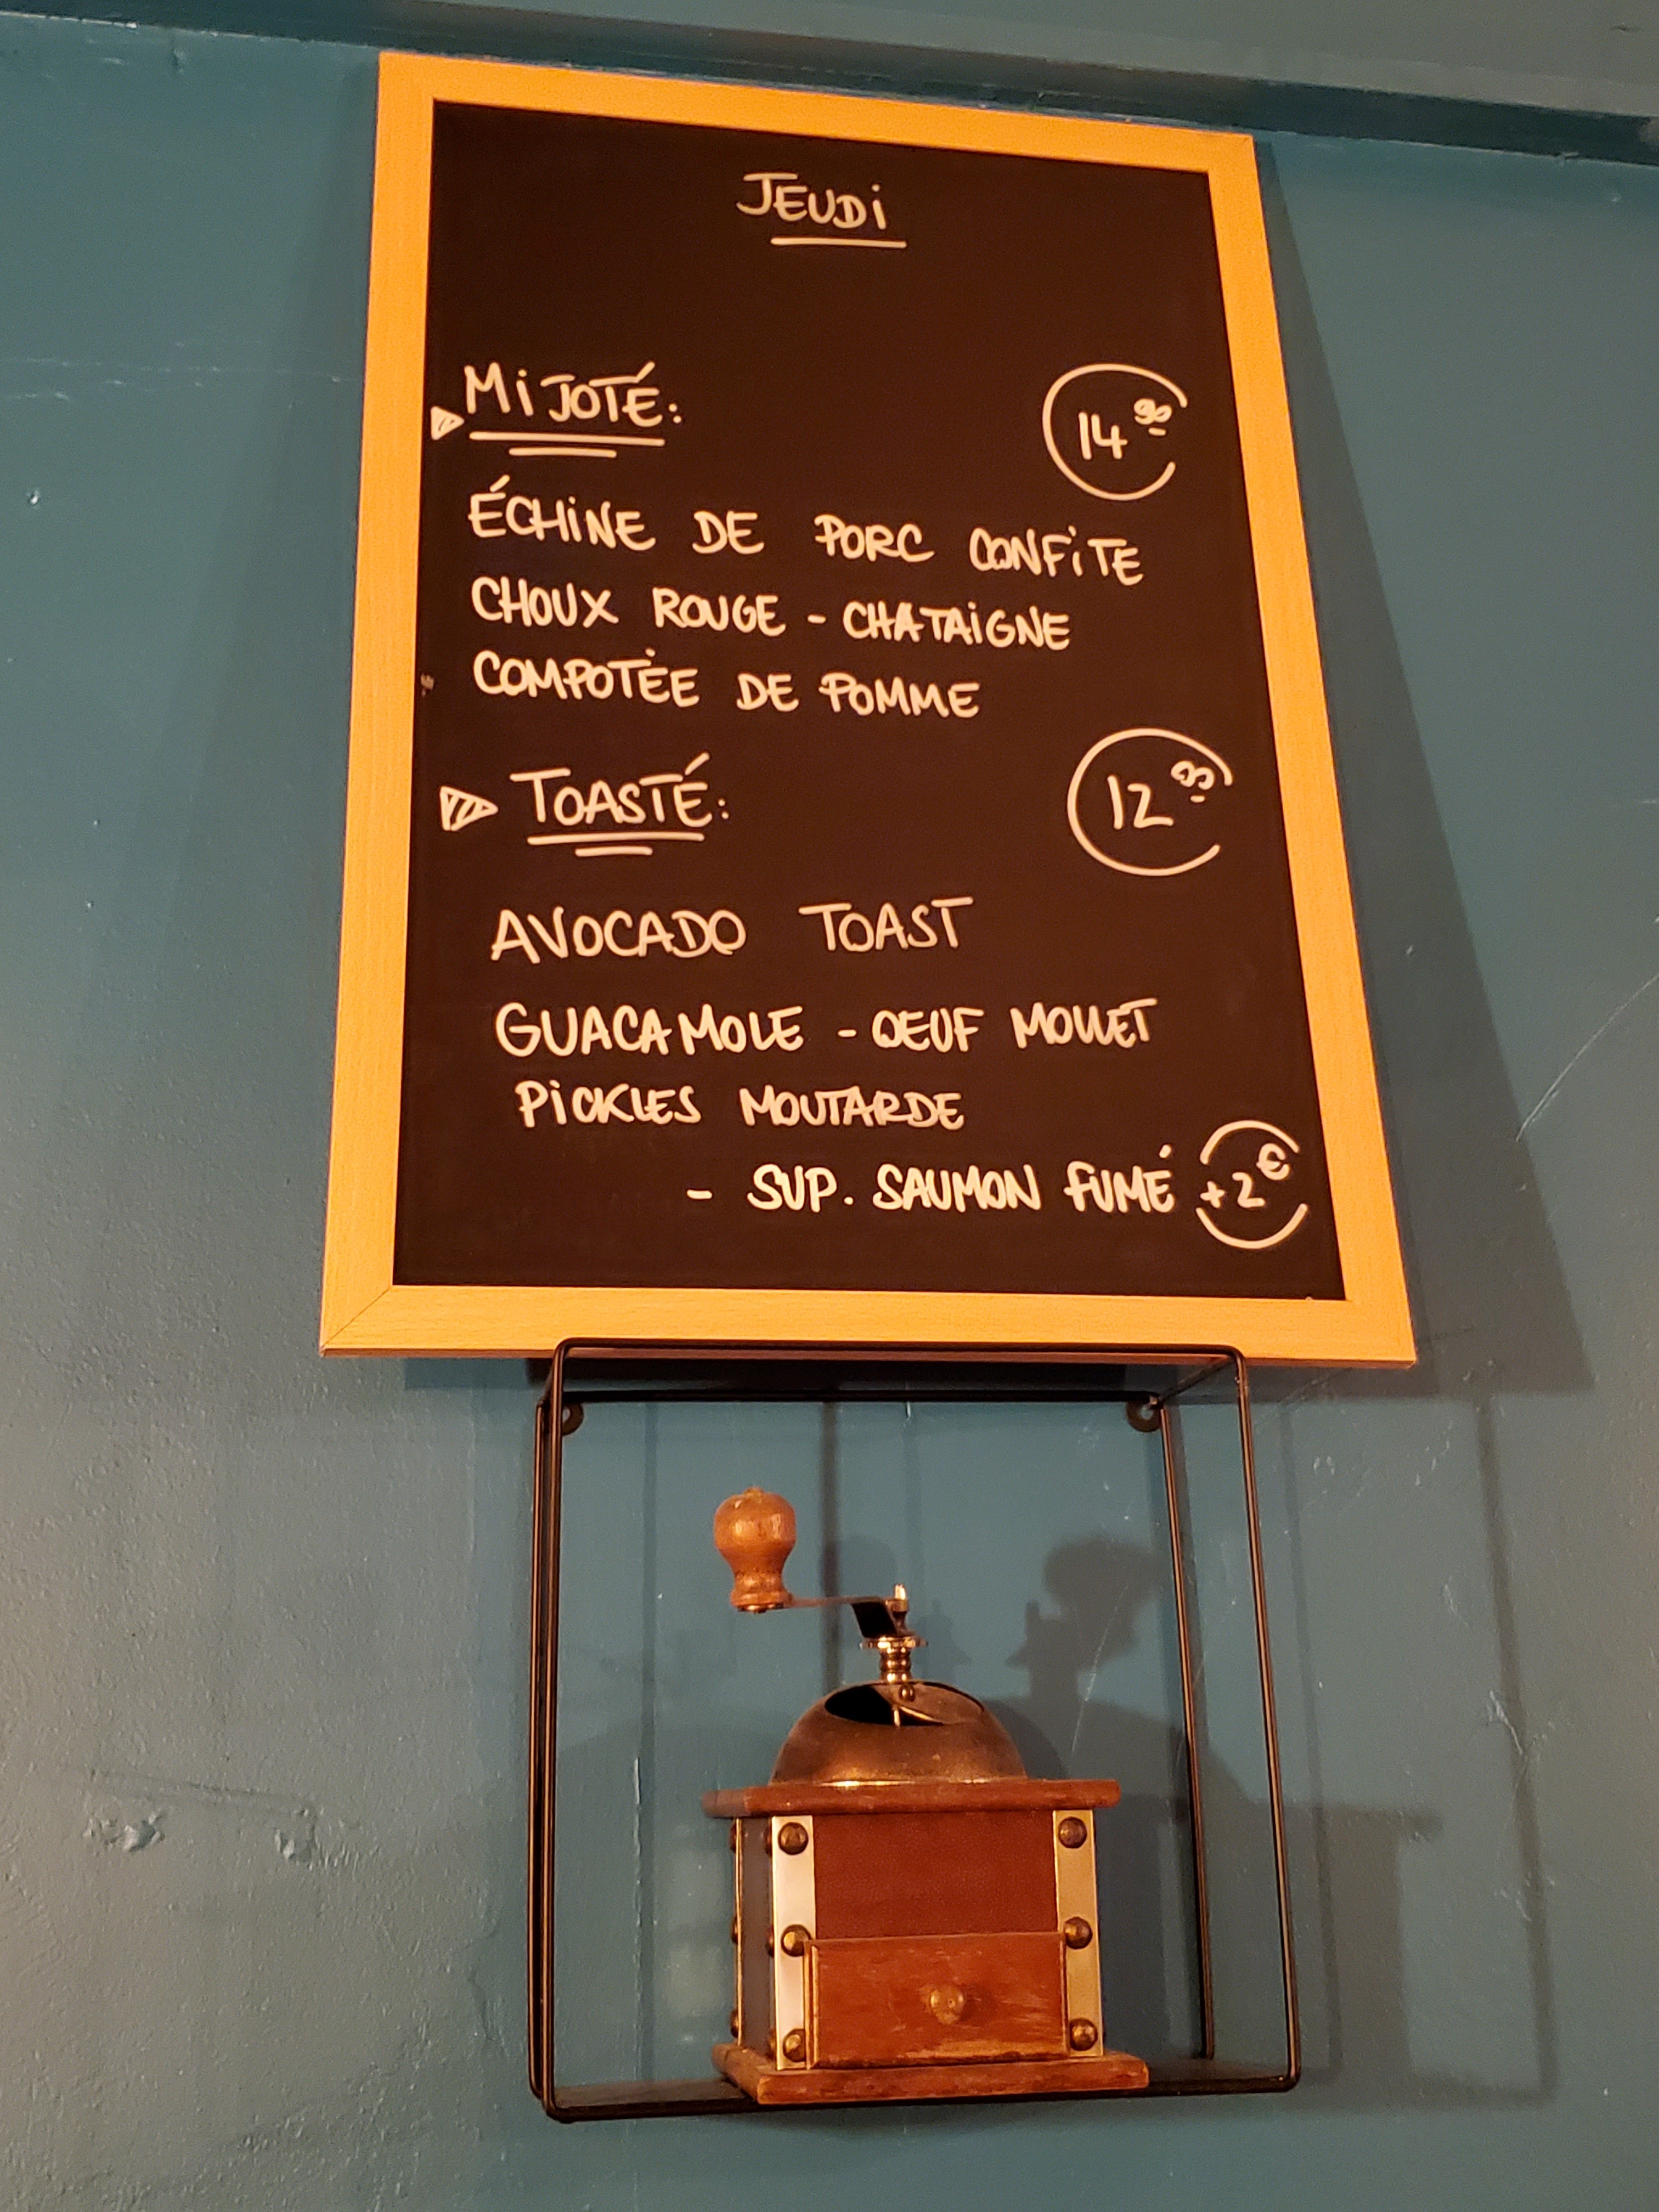 JEUDi
MiJOTÉ:
14 90
ÉCHiNE DE PORC CONFiTE
CHOUX ROUGE - CHATAiGNE
COMPOTÉE DE POMME
TOASTÉ:
12
AVOCADO TOAST
GUACAMOLE - OEUF MOLLET
PiCKLES MOUTARDE
- SUP. SAUMON FUMÉ +2€